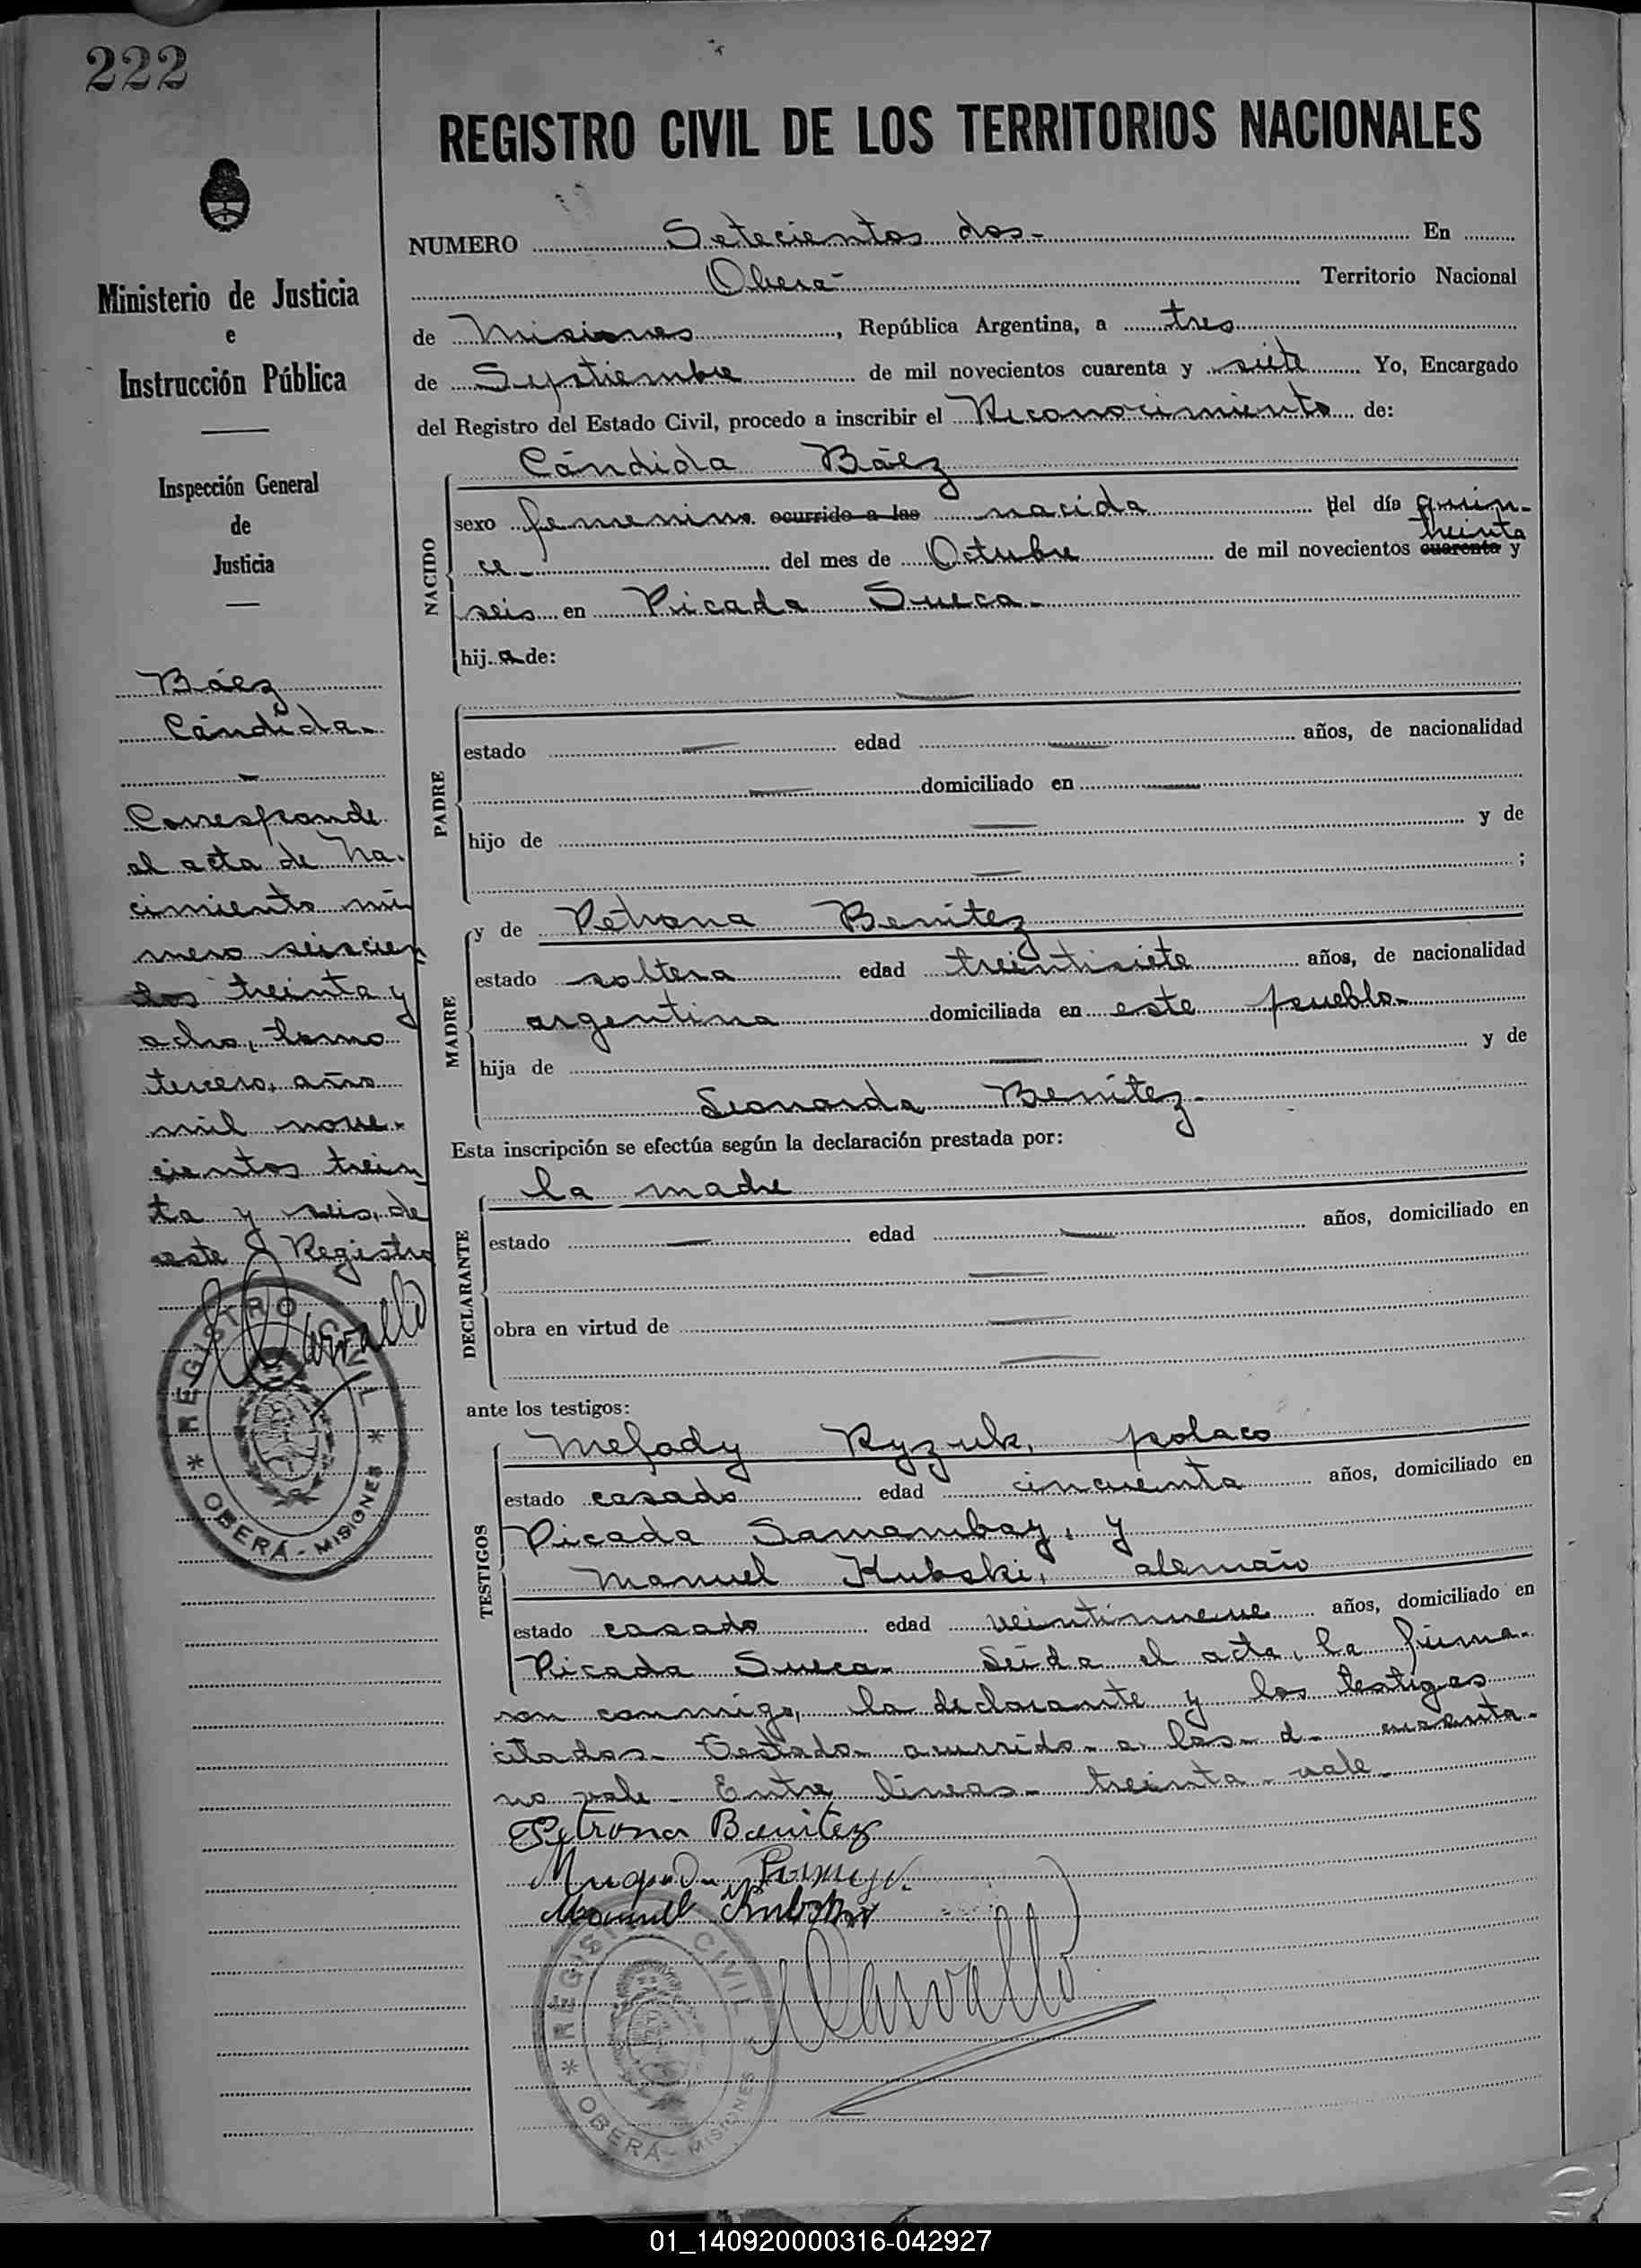 222
REGISTRO CIVIL DE LOS TERRITORIOS NACIONALES
Ministerio de Justicia
e
Instrucción Pública
Inspección General
de
Justicia
Báez
Cándida.
Corresponde
al acta de Na-
cimiento nú
mero seiscien
tos treinta y
ocho, tomo
tercero, año
mil nove-
cientos trein
ta y seis, de
este Registro
Carvallo
REGISTRO CIVIL
* OBERÁ - MISIONES *
NUMERO Setecientos dos- En
Oberá- Territorio Nacional
de Misiones, República Argentina, a tres
de Septiembre de mil novecientos cuarenta y siete Yo, Encargado
del Registro del Estado Civil, procedo a inscribir el Reconocimiento de:
NACIDO
Cándida Báez
sexo femenino ocurrido a las nacida del día quin-
treinta
ce- del mes de Octubre de mil novecientos cuarenta y
seis en Picada Sueca-
hija de:
PADRE
estado edad años, de nacionalidad
domiciliado en
hijo de y de
;
MADRE
y de Petrona Benítez
estado soltera edad treintisiete años, de nacionalidad
argentina domiciliada en este pueblo-
hija de y de
Leonarda Benítez-
Esta inscripción se efectúa según la declaración prestada por:
DECLARANTE
la madre
estado edad años, domiciliado en
obra en virtud de
ante los testigos:
TESTIGOS
Mefody Ryzuk, polaco
estado casado edad cincuenta años, domiciliado en
Picada Samambay, y
Manuel Kubski, alemán
estado casado edad veintinueve años, domiciliado en
Picada Sueca- Leída el acta, la firma-
ron conmigo, la declarante y los testigos
citados- Testado- ocurrido- a- las- d- cuarenta-
no vale- Entre líneas- treinta- vale-
Petrona Benitez
Manuel Kubski
Carvallo
REGISTRO CIVIL
* OBERÁ - MISIONES
01_140920000316-042927